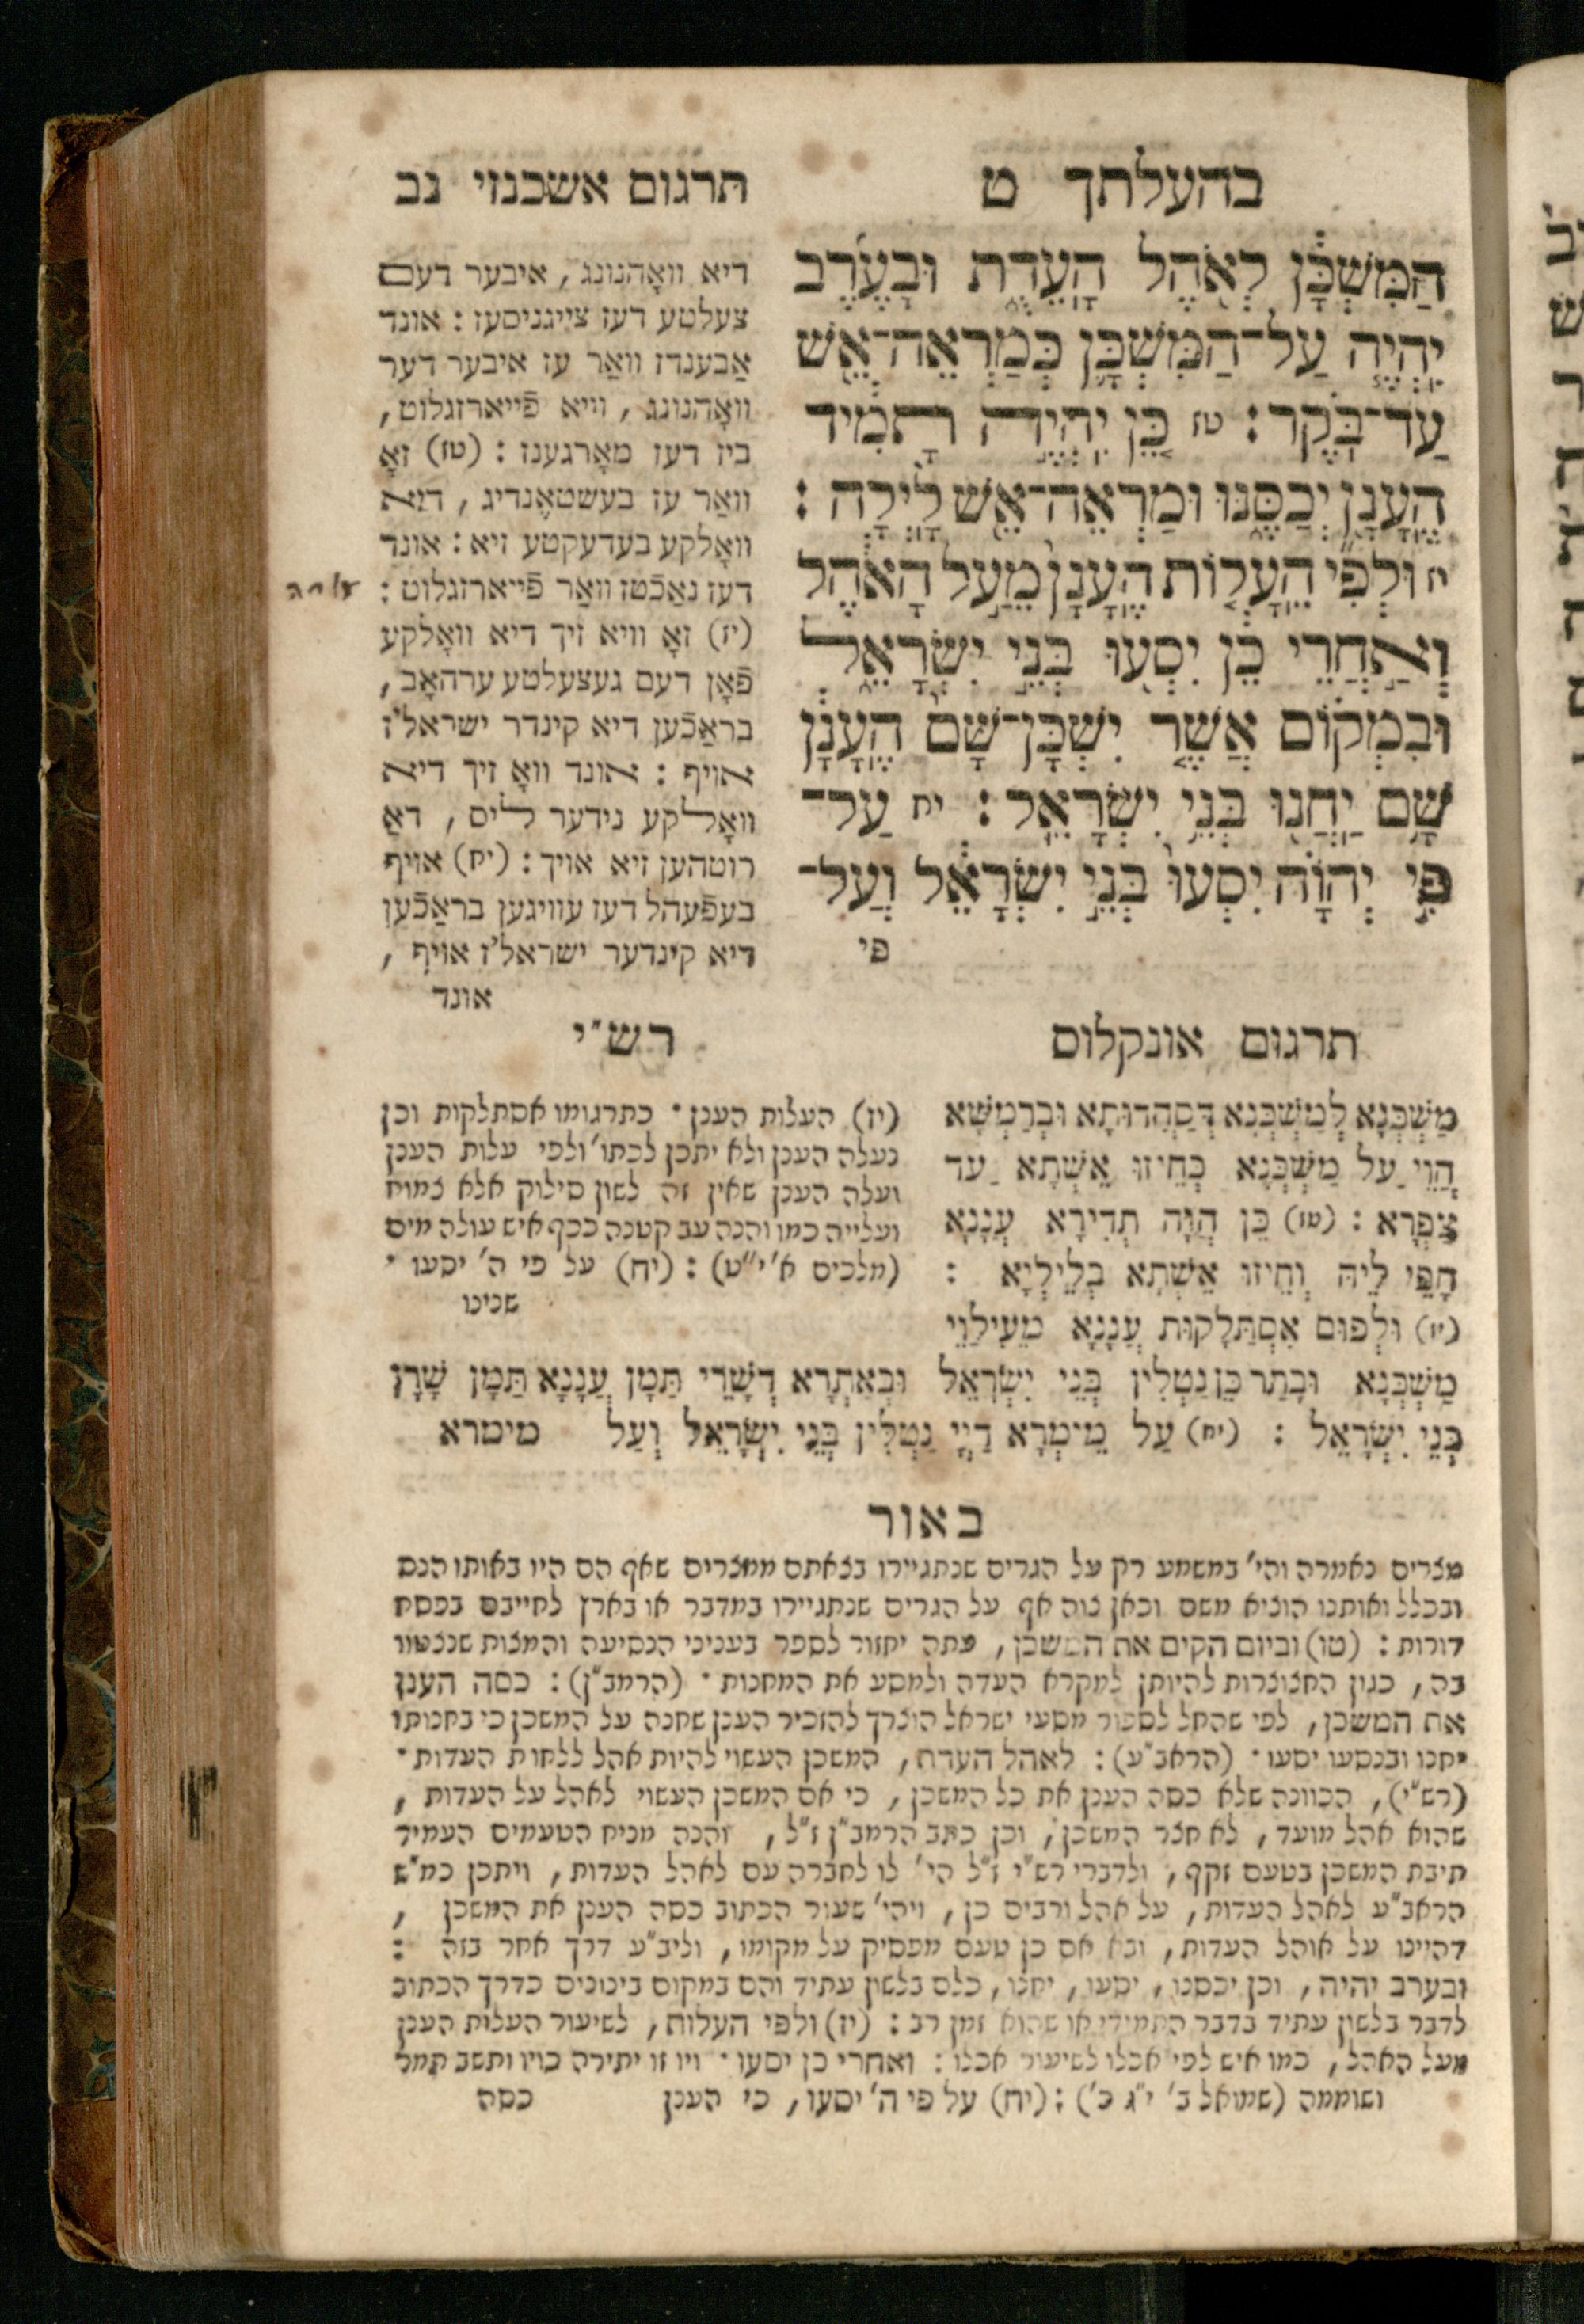 בהעלתך ט
תרגום אשכנזי נב
הַמִּשְׁכָּ֔ן לְאֹ֖הֶל הָעֵדֻ֑ת וּבָעֶ֜רֶב
יִהְיֶ֧ה עַֽל־הַמִּשְׁכָּ֛ן כְּמַרְאֵה־אֵ֖שׁ
עַד־בֹּֽקֶר׃ טז כֵּ֚ן יִהְיֶ֣ה תָמִ֔יד
הֶעָנָ֖ן יְכַסֶּ֑נּוּ וּמַרְאֵה־אֵ֖שׁ לָֽיְלָה׃
יז וּלְפִ֞י הֵעָל֤וֹת הֶֽעָנָן֙ מֵעַ֣ל הָאֹ֔הֶל
וְאַ֣חֲרֵי כֵ֔ן יִסְע֖וּ בְּנֵ֣י יִשְׂרָאֵ֑ל
וּבִמְק֗וֹם אֲשֶׁ֤ר יִשְׁכָּן־שָׁם֙ הֶֽעָנָ֔ן
שָׁ֥ם יַחֲנ֖וּ בְּנֵ֥י יִשְׂרָאֵֽל׃ יח עַל־
פִּ֣י יְהוָ֗ה יִסְעוּ֙ בְּנֵ֣י יִשְׂרָאֵ֔ל וְעַל־
פי
דיא וואָהנונג, איבער דעם
צעלטע דעז צייגניסעז: אונד
אַבענדז וואַר עז איבער דער
וואָהנונג, וויא פֿייארזגלוט,
ביז דעז מאָרגענז: (טז) זאָ
וואַר עז בעשטאֶנדיג, דיא
וואָלקע בעדעקטע זיא: אונד
דעז נאַכֿטז וואַר פֿייארזגלוט:
(יז) זאָ וויא זיך דיא וואָלקע
פֿאָן דעם געצעלטע ערהאָב,
בראַכֿען דיא קינדר ישראל'ז
אויף: אונד וואָ זיך דיא
וואָלקע נידער ליס, דאַ
רוטהען זיא אויך: (יח) אויף
בעפֿעהל דעז עוויגען בראַכֿען
דיא קינדער ישראל'ז אויף,
אונד
תרגום אונקלוס
מַשְׁכְּנָא לְמַשְׁכְּנָא דְּסַהֲדוּתָא וּבְרַמְשָׁא
הֲוֵי עַל מַשְׁכְּנָא כְּחֵיזוּ אֶשָּׁתָא עַד
צַפְרָא: (טז) כֵּן הֲוָה תְדִירָא עֲנָנָא
חָפֵי לֵיהּ וְחֵיזוּ אֶשָּׁתָא בְּלֵילְיָא:
(יז) וּלְפוּם אִסְתַּלָקוּת עֲנָנָא מֵעִילָוֵי
מַשְׁכְּנָא וּבָתַר כֵּן נַטְלִין בְּנֵי יִשְׂרָאֵל וּבְאַתְרָא דְּשָׁרֵי תַּמָן עֲנָנָא תַּמָן שָׁרָן
בְּנֵי יִשְׂרָאֵל: (יח) עַל מֵימְרָא דַיְיָ נַטְלִין בְּנֵי יִשְׂרָאֵל וְעַל מימרא
רש"י
(יז) העלות הענן. כתרגומו אסתלקות וכן
נעלה הענן ולא יתכן לכתו' ולפי עלות הענן
ועלה הענן שאין זה לשון סילוק אלא צמוח
ועלייה כמו והנה עב קטנה ככף איש עולה מים
(מלכים א' י"ט): (יח) על פי ה' יסעו.
שנינו
באור
מצרים נאמרה והי' במשמע רק על הגרים שנתגיירו בצאתם ממצרים שאף הם היו באותו הנס
ובכלל ואותנו הוציא משם וכאן צוה אף על הגרים שנתגיירו במדבר או בארץ לחייבם בפסח
דורות: (טו) וביום הקים את המשכן, עתה יחזור לספר בעניני הנסיעה והמצות שנצטוו
בה, כגון החצוצרות להיותן למקרא העדה ולמסע את המחנות. (הרמב"ן): כסה הענן
את המשכן, לפי שהחל לספור מסעי ישראל הוצרך להזכיר הענן שחנה על המשכן כי בחנותו
יחנו ובנסעו יסעו. (הראב"ע): לאהל העדת, המשכן העשוי להיות אהל ללחות העדות.
(רש"י), הכוונה שלא כסה הענן את כל המשכן, כי אם המשכן העשוי לאהל על העדות,
שהוא אהל מועד, לא חצר המשכן, וכן כתב הרמב"ן ז"ל, והנה מניח הטעמים העמיד
תיבת המשכן בטעם זקף, ולדברי רש"י ז"ל הי' לו לחברה עם לאהל העדות, ויתכן כמ"ש
הראב"ע לאהל העדות, על אהל ורבים כן, ויהי' שעור הכתוב כסה הענן את המשכן,
דהיינו על אוהל העדות, ובא אם כן טעם מפסיק על מקומו, וליב"ע דרך אחר בזה:
ובערב יהיה, וכן יכסנו, יסעו, יחנו, כלם בלשון עתיד והם במקום בינונים כדרך הכתוב
לדבר בלשון עתיד בדבר התמידי או שהוא זמן רב: (יז) ולפי העלות, לשיעור העלות הענן
מעל האהל, כמו איש לפי אכלו לשיעור אכלו: ואחרי כן יסעו. ויו זו יתירה כויו ותשב תמר
ושוממה (שמואל ב' י"ג כ'): (יח) על פי ה' יסעו, כי הענן כסה